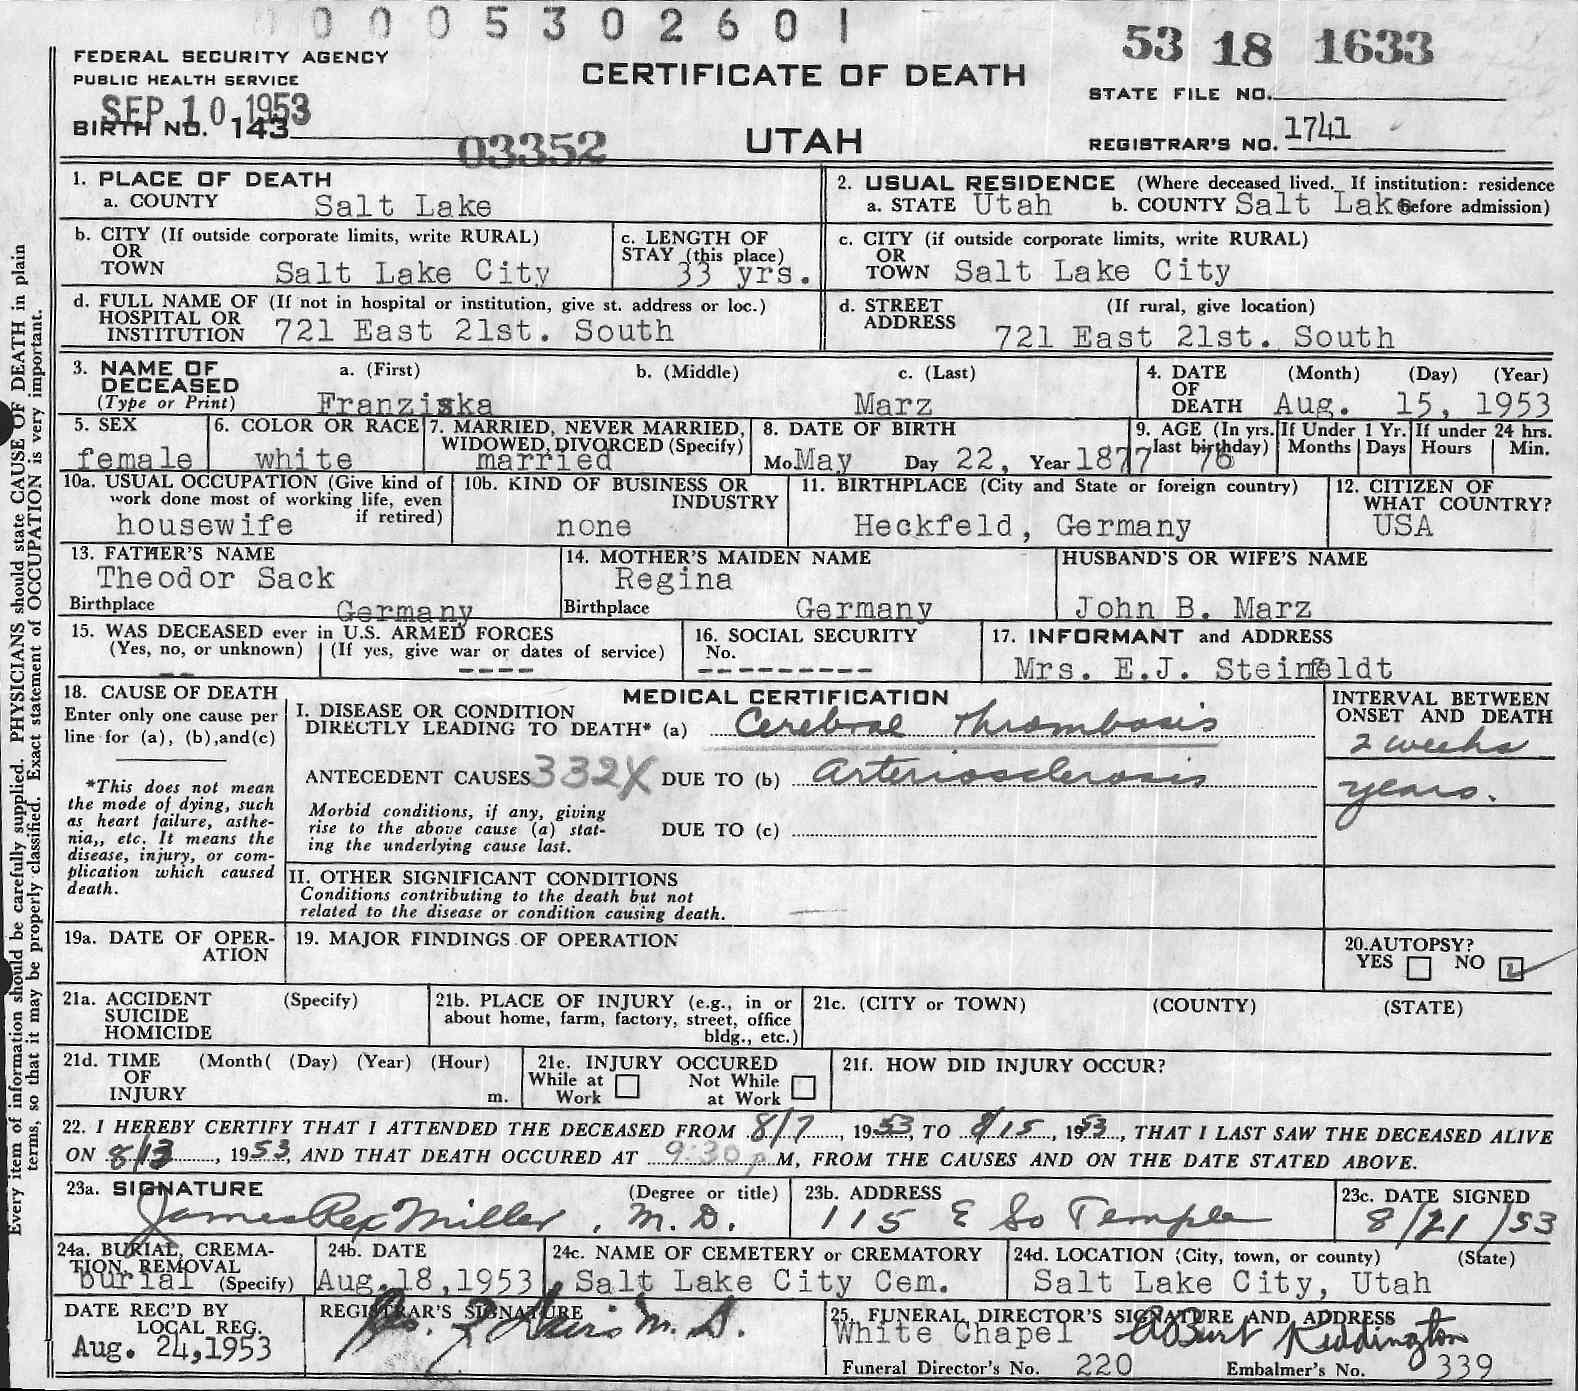 0005302601
53 18 1633
FEDERAL SECURITY AGENCY
PUBLIC HEALTH SERVICE
SEP 10 1953
BIRTH NO. 143
03352
CERTIFICATE OF DEATH
UTAH
STATE FILE NO.
REGISTRAR'S NO. 1741
1. PLACE OF DEATH
a. COUNTY Salt Lake
2. USUAL RESIDENCE (Where deceased lived. If institution: residence before admission)
a. STATE Utah b. COUNTY Salt Lake
b. CITY (If outside corporate limits, write RURAL)
OR
TOWN Salt Lake City
c. LENGTH OF
STAY (this place)
33 yrs.
c. CITY (if outside corporate limits, write RURAL)
OR
TOWN Salt Lake City
d. FULL NAME OF (If not in hospital or institution, give st. address or loc.)
HOSPITAL OR
INSTITUTION 721 East 21st. South
d. STREET (If rural, give location)
ADDRESS 721 East 21st. South
3. NAME OF
DECEASED
(Type or Print)
a. (First) b. (Middle) c. (Last)
Franziska Marz
4. DATE (Month) (Day) (Year)
OF
DEATH Aug. 15, 1953
5. SEX
female
6. COLOR OR RACE
white
7. MARRIED, NEVER MARRIED,
WIDOWED, DIVORCED (Specify)
married
8. DATE OF BIRTH
Mo. May Day 22, Year 1877
9. AGE (In yrs.
last birthday)
76
If Under 1 Yr.
Months Days
If under 24 hrs.
Hours Min.
10a. USUAL OCCUPATION (Give kind of
work done most of working life, even
if retired)
housewife
10b. KIND OF BUSINESS OR
INDUSTRY
none
11. BIRTHPLACE (City and State or foreign country)
Heckfeld, Germany
12. CITIZEN OF
WHAT COUNTRY?
USA
13. FATHER'S NAME
Theodor Sack
Birthplace Germany
14. MOTHER'S MAIDEN NAME
Regina
Birthplace Germany
HUSBAND'S OR WIFE'S NAME
John B. Marz
15. WAS DECEASED ever in U.S. ARMED FORCES
(Yes, no, or unknown) (If yes, give war or dates of service)
-- ----
16. SOCIAL SECURITY
No.
---------
17. INFORMANT and ADDRESS
Mrs. E.J. Steinfeldt
18. CAUSE OF DEATH
Enter only one cause per
line for (a), (b),and(c)
*This does not mean
the mode of dying, such
as heart failure, asthe-
nia,, etc. It means the
disease, injury, or com-
plication which caused
death.
MEDICAL CERTIFICATION
I. DISEASE OR CONDITION
DIRECTLY LEADING TO DEATH* (a) Cerebral Thrombosis
ANTECEDENT CAUSES 332X DUE TO (b) Arteriosclerosis
Morbid conditions, if any, giving
rise to the above cause (a) stat-
ing the underlying cause last.
DUE TO (c)
INTERVAL BETWEEN
ONSET AND DEATH
2 weeks
years.
II. OTHER SIGNIFICANT CONDITIONS
Conditions contributing to the death but not
related to the disease or condition causing death.
19a. DATE OF OPER-
ATION
19. MAJOR FINDINGS OF OPERATION
20. AUTOPSY?
YES NO
21a. ACCIDENT (Specify)
SUICIDE
HOMICIDE
21b. PLACE OF INJURY (e.g., in or
about home, farm, factory, street, office
bldg., etc.)
21c. (CITY or TOWN) (COUNTY) (STATE)
21d. TIME (Month( (Day) (Year) (Hour)
OF
INJURY m.
21e. INJURY OCCURED
While at Not While
Work at Work
21f. HOW DID INJURY OCCUR?
22. I HEREBY CERTIFY THAT I ATTENDED THE DECEASED FROM 8/7, 1953, TO 8/15, 1953, THAT I LAST SAW THE DECEASED ALIVE
ON 8/13, 1953, AND THAT DEATH OCCURED AT 9:30 p M, FROM THE CAUSES AND ON THE DATE STATED ABOVE.
23a. SIGNATURE (Degree or title)
James Rex Miller, M.D.
23b. ADDRESS
115 E So Temple
23c. DATE SIGNED
8/21/53
24a. BURIAL, CREMA-
TION, REMOVAL
burial (Specify)
24b. DATE
Aug.18,1953
24c. NAME OF CEMETERY or CREMATORY
Salt Lake City Cem.
24d. LOCATION (City, town, or county) (State)
Salt Lake City, Utah
DATE REC'D BY
LOCAL REG.
Aug. 24,1953
REGISTRAR'S SIGNATURE
M.D.
25. FUNERAL DIRECTOR'S SIGNATURE AND ADDRESS
White Chapel A Burt Reddington
Funeral Director's No. 220 Embalmer's No. 339
Every item of information should be carefully supplied. PHYSICIANS should state CAUSE OF DEATH in plain
terms, so that it may be properly classified. Exact statement of OCCUPATION is very important.